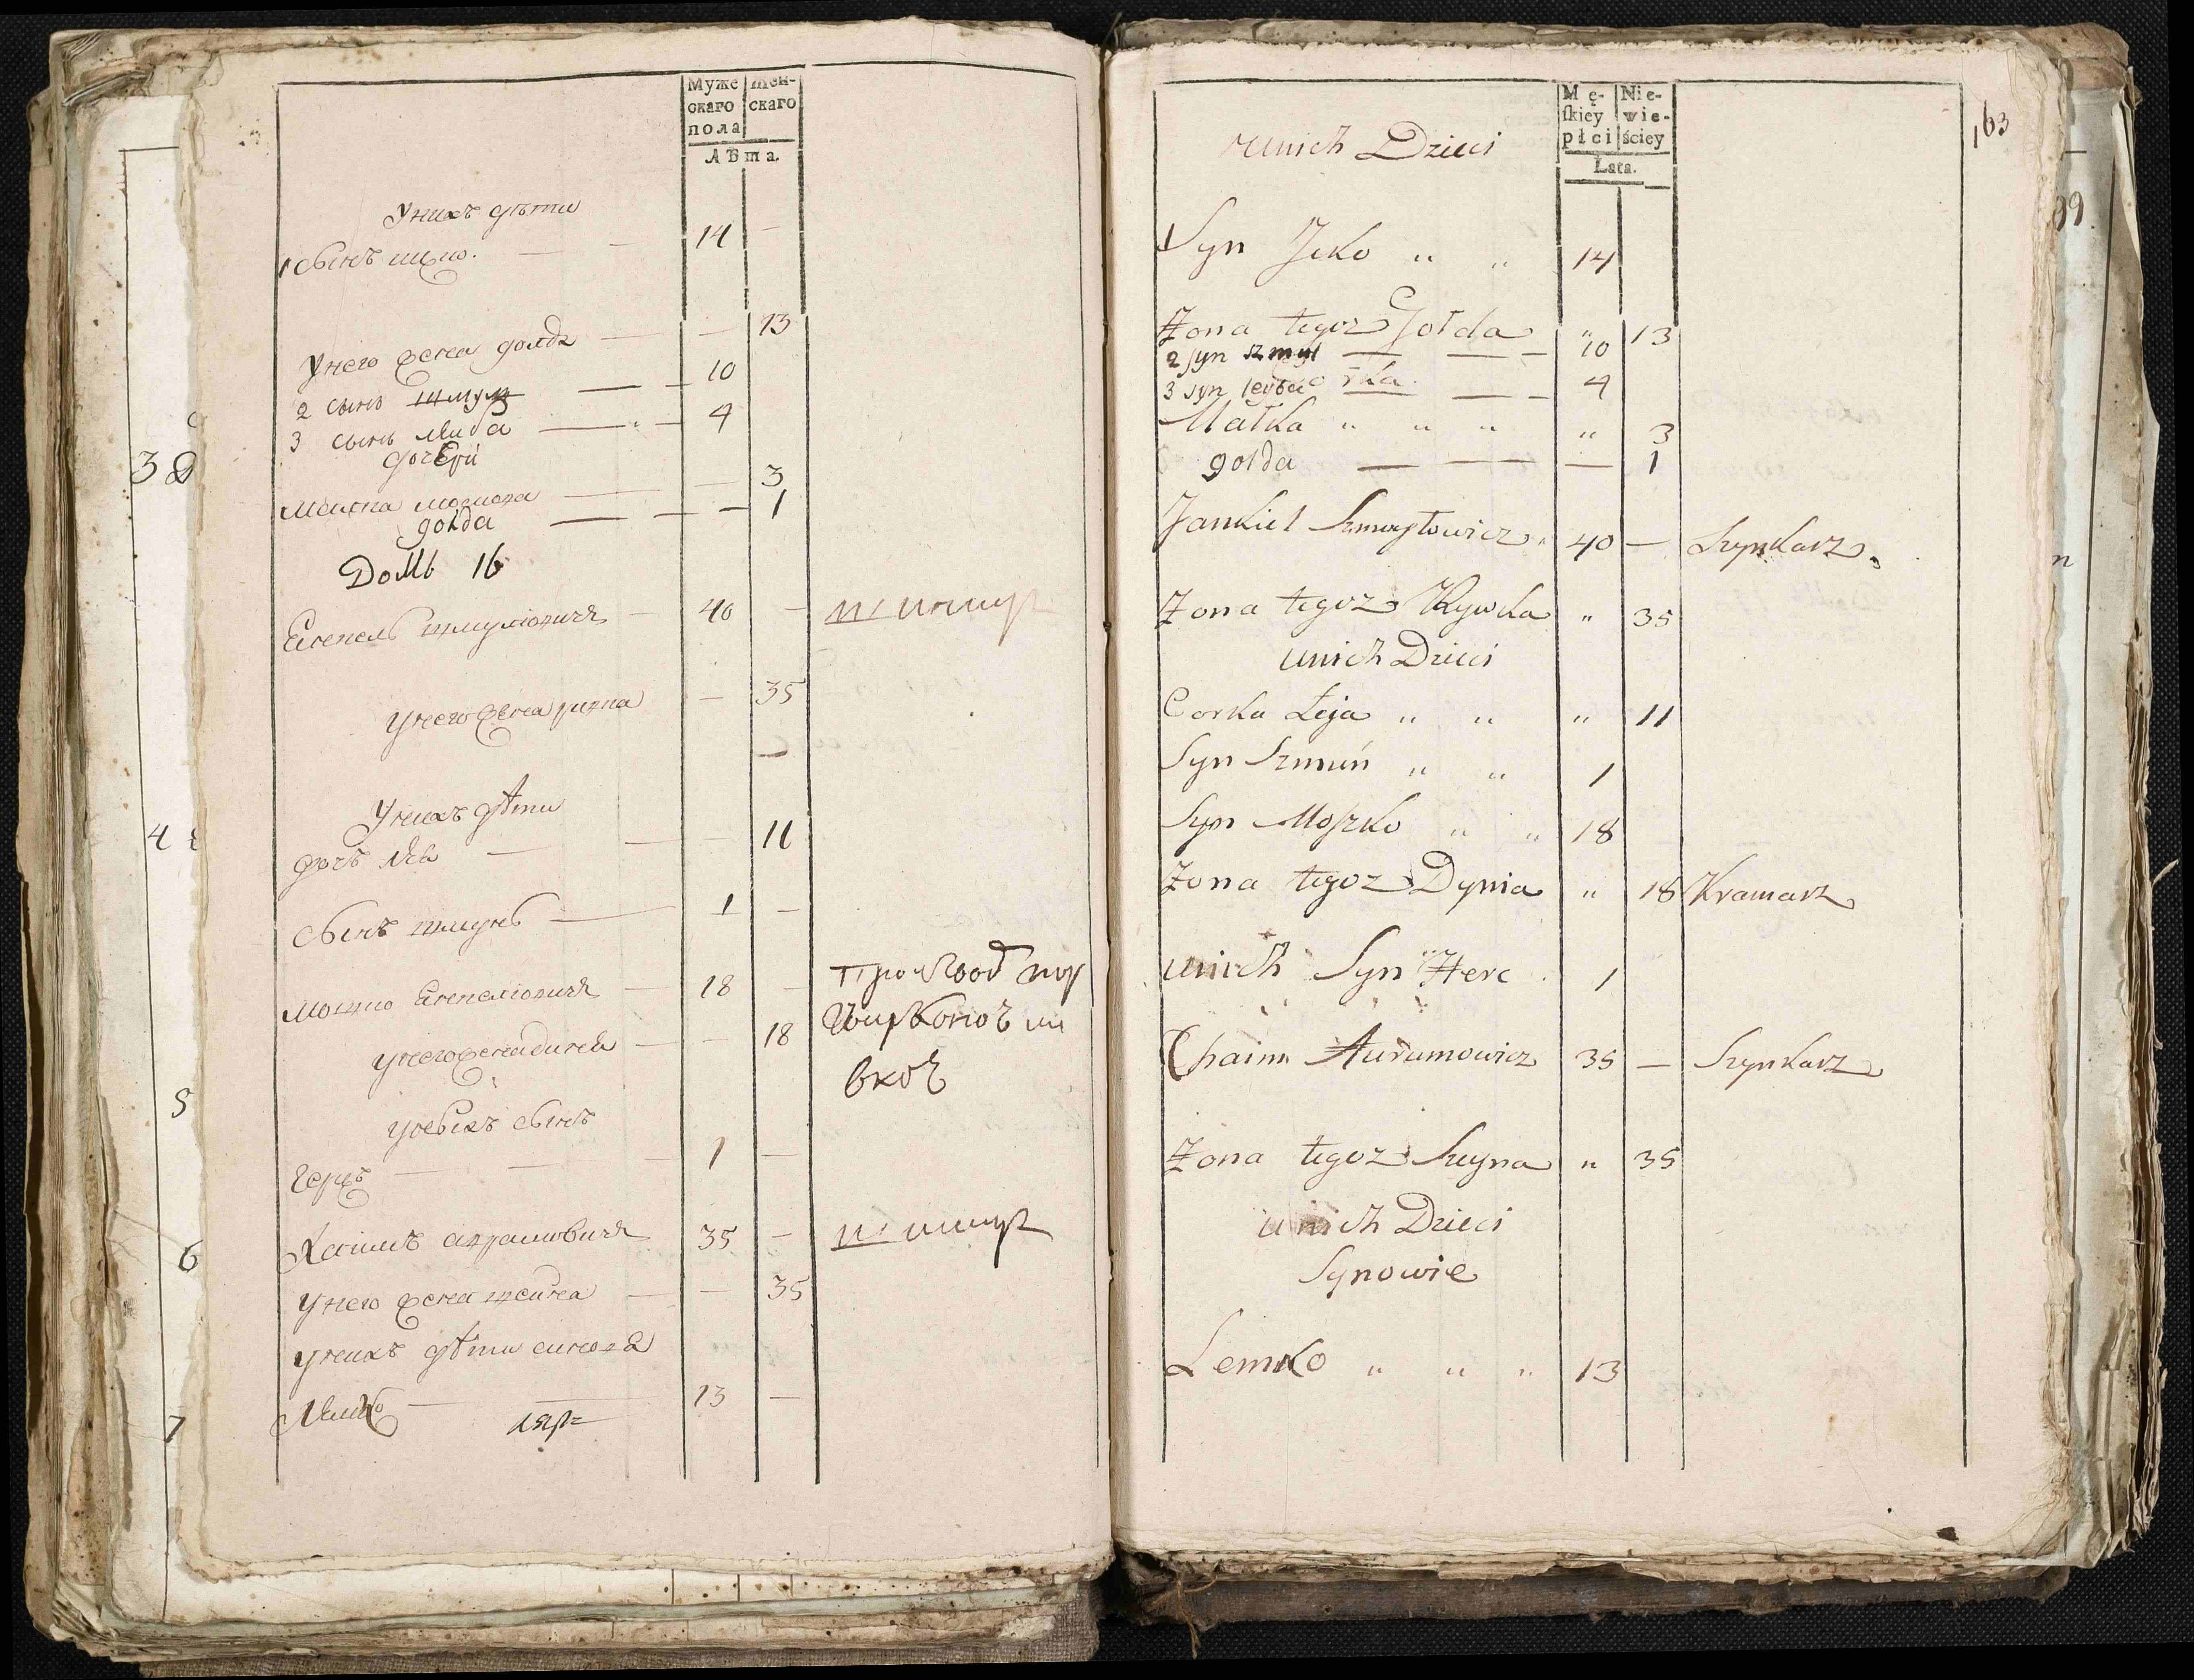 Муже скаго пола
Жен- скаго
Лѣта.
Унихъ дѣти
1 сынъ ицко. — — 14 —
Унего жена голда — — 13
2 сынъ шмуль — — 10
3 сынъ лейба — — 4
дочери
малка — — 3
gołda — — — 1
Домъ 16
Янкель шмулiовичъ — 40 — шинкарь
унего жена ривка — 35
—
Унихъ дѣти
дочь лея — — — 11
сынъ шмунь — 1 —
мошко Янкелiовичъ — 18 —
унего жена диня — — 18
унихъ сынъ
герцъ — — — 1 —
Хаимъ аврамовичъ 35 — шинкарь
Унего жена шейна — — 35
унихъ дѣти синовя
Лемко — 13 —
38
4
5
6
7
163
99
Mę- skiey płci
Nie- wie- ściey
Lata.
unich Dzieci
1 Syn Icko " " 14
Zona tegoz Gołda " 13
2 syn szmul — — — 10
3 syn leyba — — — 4
Małka " " " " 3
gołda — — — 1
Jankiel Szmuyłowicz " 40 — Szynkarz
Zona tegoz Rywka " 35
unich Dzieci
Corka Leja " " " 11
Syn Szmuń " " 1
Syn Moszko " " 18
Zona tegoz Dynia " 18 Kramarz
unich Syn Herc 1
Chaim Auramowicz 35 — Szynkarz
Zona tegoz Szeyna " 35
unich Dzieci
Synowie
Lemko " " " 13